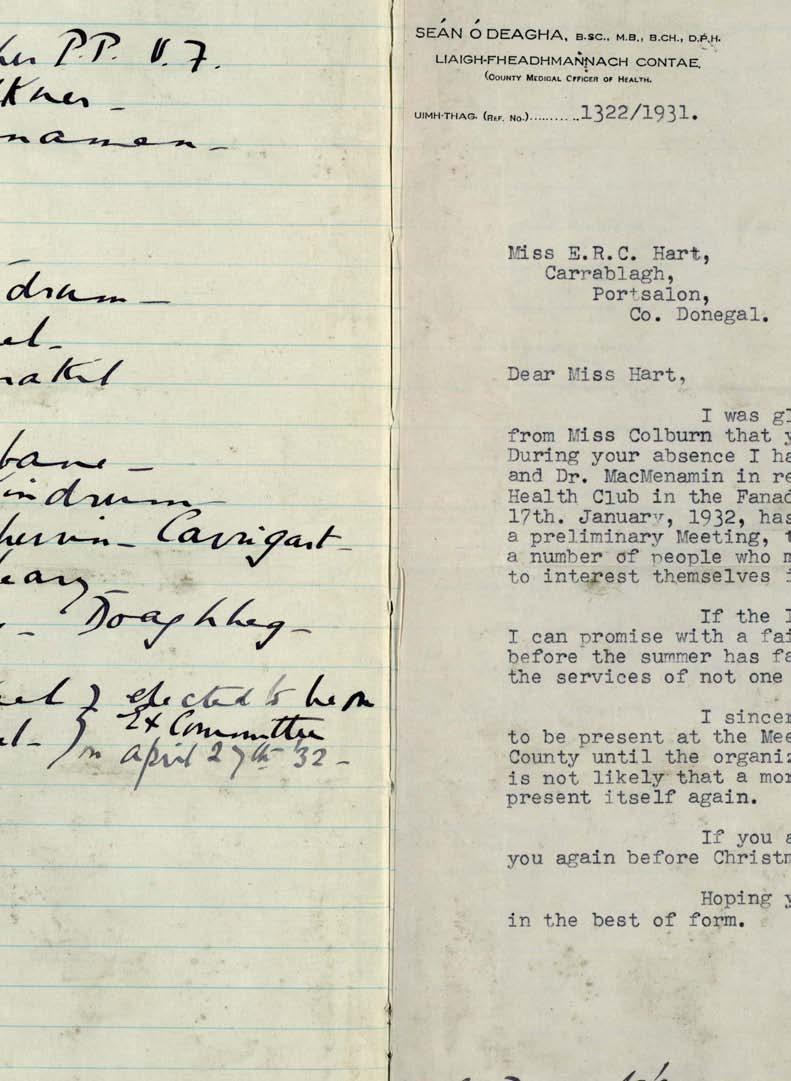 P.P. V.F.
drum –
in drum –
Carrigart –
Doaghbeg –
elected to be on
Ex Committee
on april 27th '32 –
SEÁN Ó DEAGHA, B.SC., M.B., B.CH., D.P.H.
LIAIGH-FHEADHMANNACH CONTAE.
(COUNTY MEDICAL OFFICER OF HEALTH.
UIMH-THAG. (REF. NO.)..........1322/1931.
Miss E.R.C. Hart,
Carrablagh,
Portsalon,
Co. Donegal.
Dear Miss Hart,
I was gl
from Miss Colburn that y
During your absence I ha
and Dr. MacMenamin in re
Health Club in the Fanad
17th. January, 1932, has
a preliminary Meeting, t
a number of people who m
to interest themselves i
If the I
I can promise with a fai
before the summer has fa
the services of not one
I sincer
to be present at the Mee
County until the organiz
is not likely that a mor
present itself again.
If you a
you again before Christm
Hoping y
in the best of form.